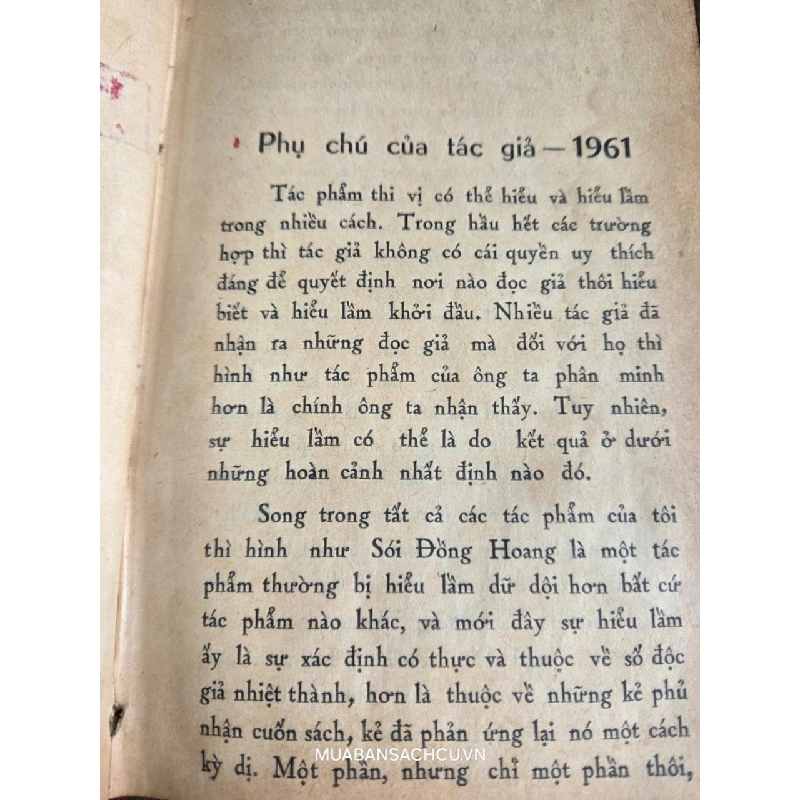 Phụ chú của tác giả — 1961
Tác phẩm thi vị có thể hiểu và hiểu lầm
trong nhiều cách. Trong hầu hết các trường
hợp thì tác giả không có cái quyền uy thích
đáng để quyết định nơi nào đọc giả thôi hiểu
biết và hiểu lầm khởi đầu. Nhiều tác giả đã
nhận ra những đọc giả mà đối với họ thì
hình như tác phẩm của ông ta phân minh
hơn là chính ông ta nhận thấy. Tuy nhiên,
sự hiểu lầm có thể là do kết quả ở dưới
những hoàn cảnh nhất định nào đó.
Song trong tất cả các tác phẩm của tôi
thì hình như Sói Đồng Hoang là một tác
phẩm thường bị hiểu lầm dữ dội hơn bất cứ
tác phẩm nào khác, và mới đây sự hiểu lầm
ấy là sự xác định có thực và thuộc về số độc
giả nhiệt thành, hơn là thuộc về những kẻ phủ
nhận cuốn sách, kẻ đã phản ứng lại nó một cách
kỳ dị. Một phần, nhưng chỉ một phần thôi,
MUABANSACHCU.VN